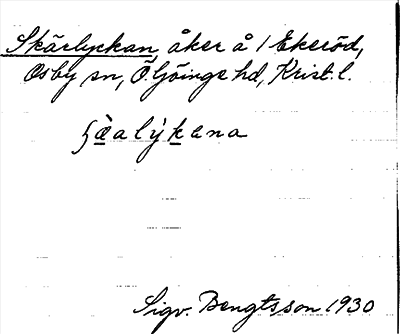 Skärlyckan, åker å 1 Ekeröd,
Osby sn, Ö. Göinge hd, Krist. l.
ʂæ̀alýkena
Sigv. Bengtsson 1930